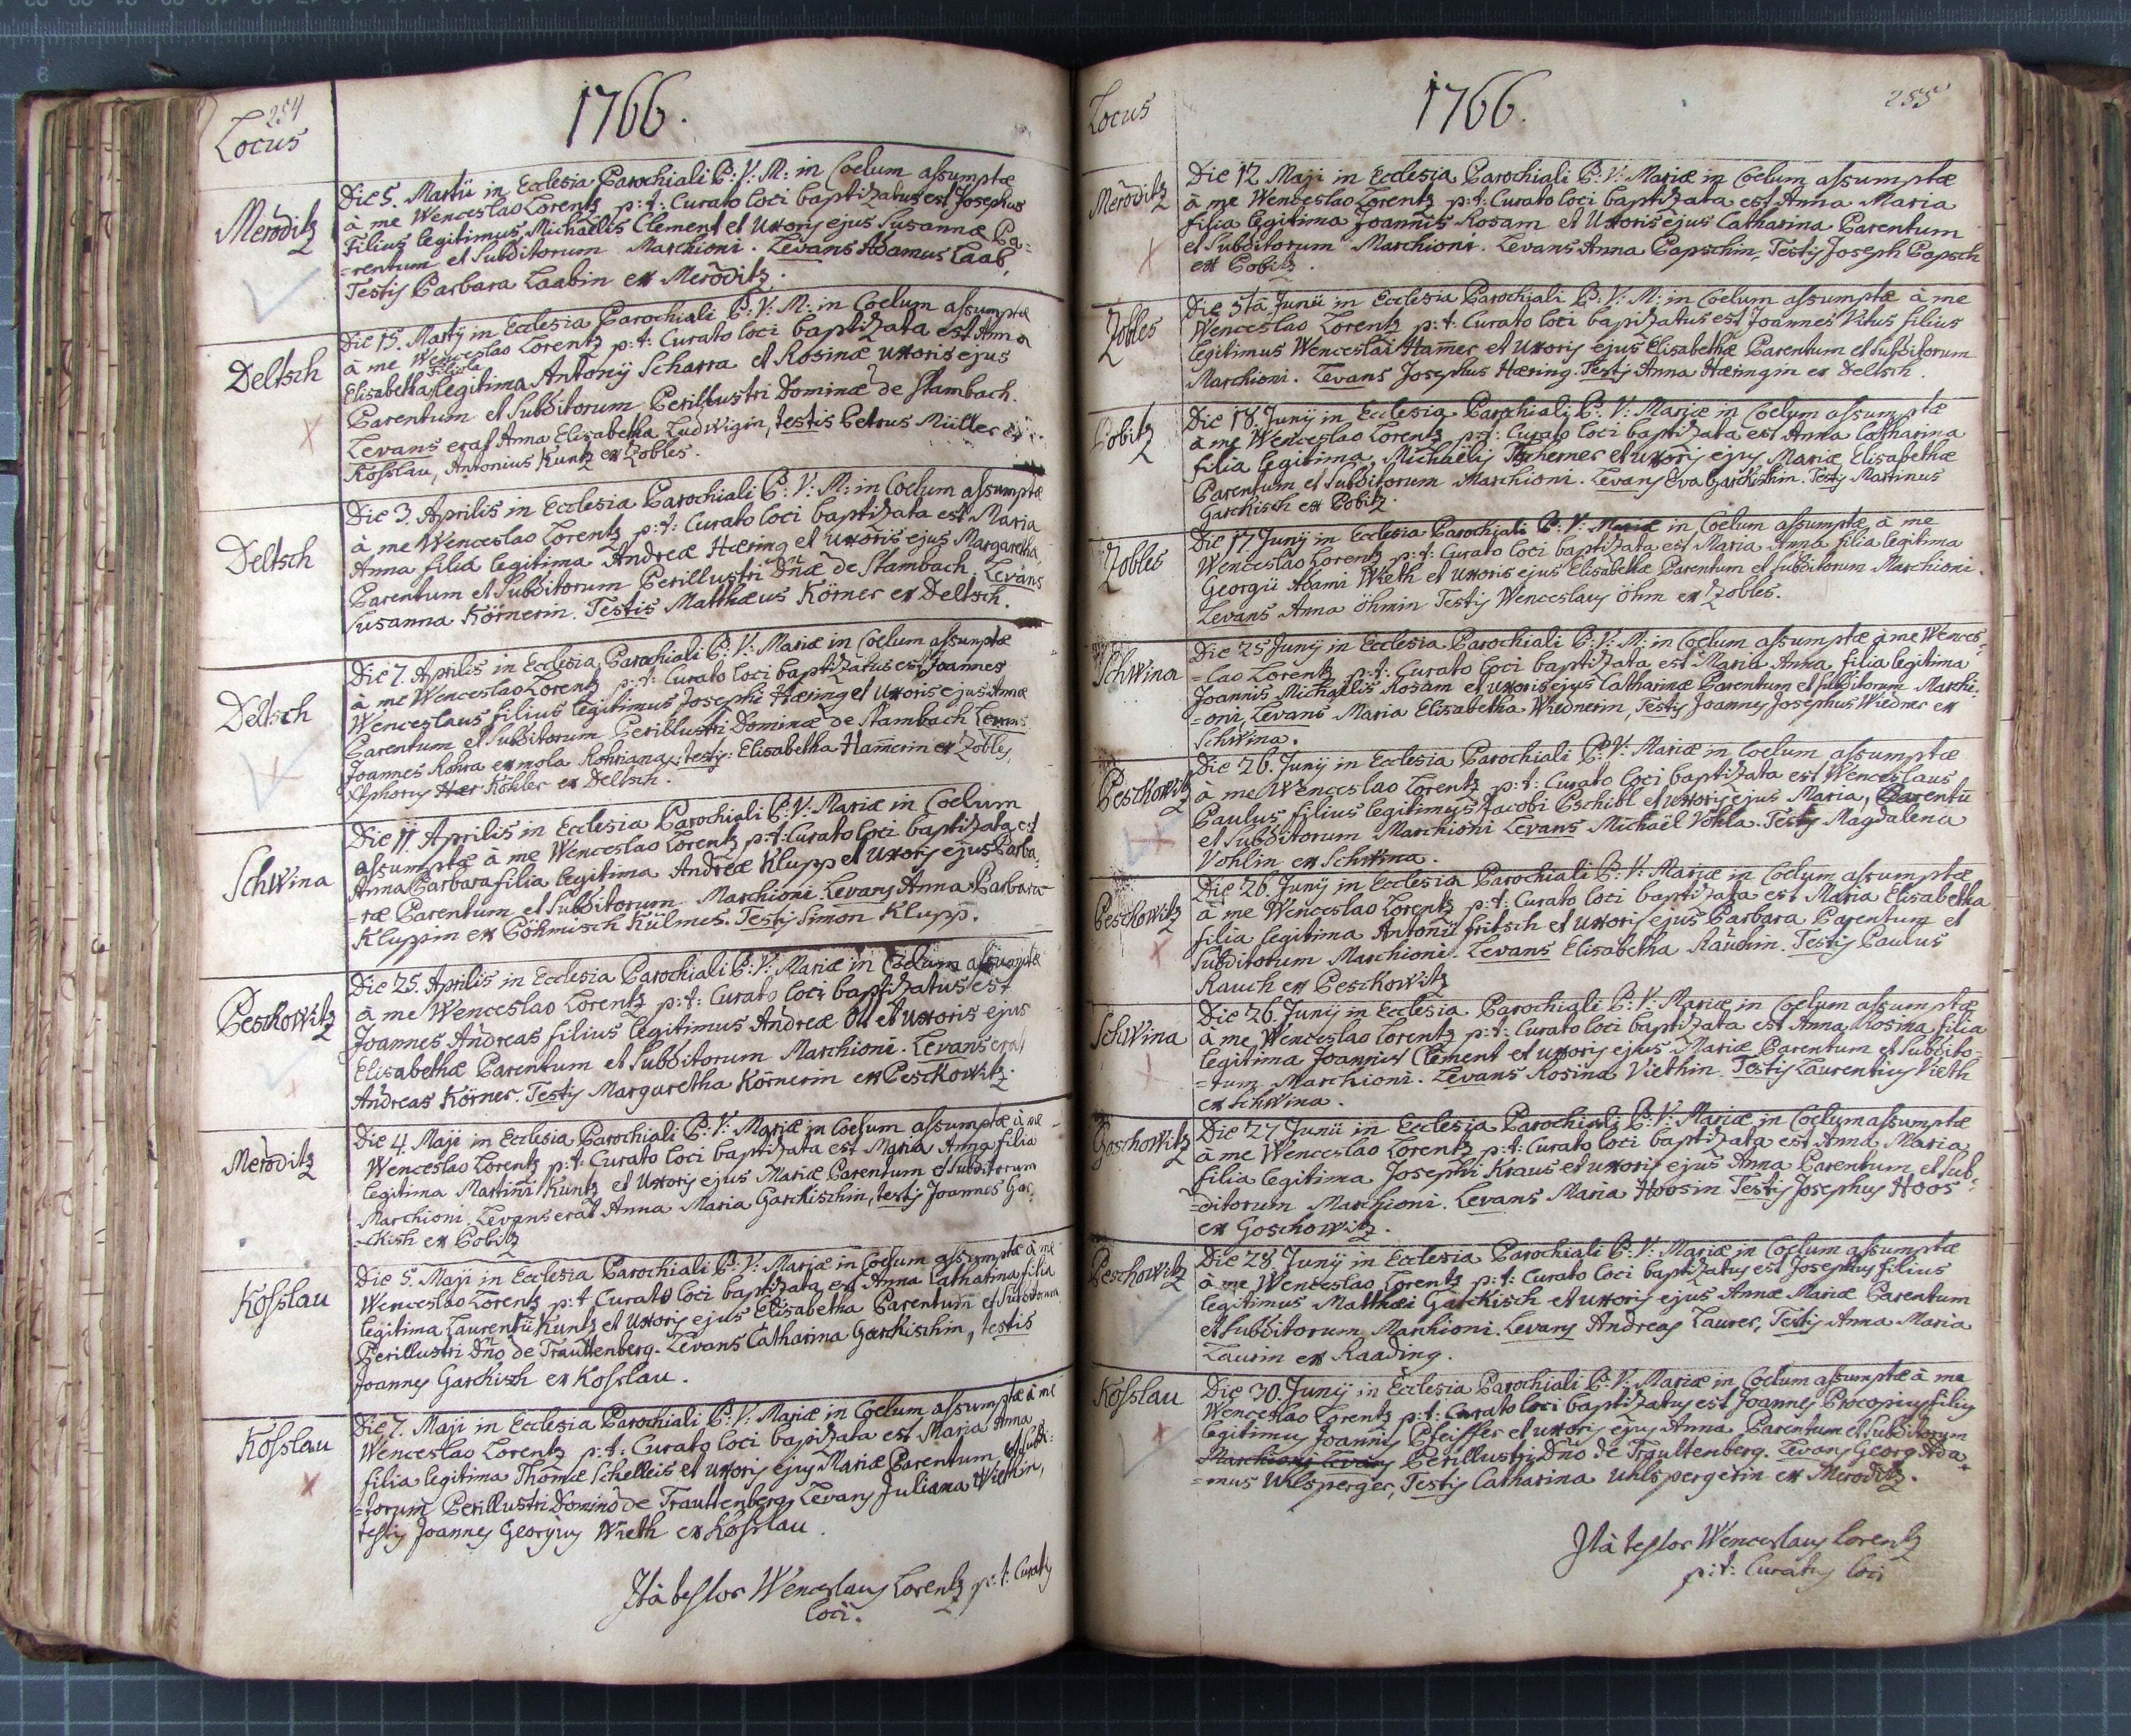 254
Locus
1766.
Meroditz
Die 5. Martii in Ecclesia Parochiali B: V: M: in Coelum assumptæ
à me Wenceslao Lorentz p: t: Curato loci baptizatus est Josephus
Filius legitimus Michaelis Clement et Uxoris ejus Susannæ Pa-
=rentum et Subditorum Marchioni. Levans Adamus Laab,
Testis Barbara Laabin ex Meroditz.
Deltsch
Die 15. Martij in Ecclesia Parochiali B: V: M: in Coelum assumptæ
à me Wenceslao Lorentz p: t: Curato loci baptizata est Anna
Filiola
Elisabetha legitima Antonij Scharra et Rosinæ uxoris ejus
Parentum et Subditorum Perillustri Dominæ de Stambach.
Levans erat Anna Elisabetha Ludwigin, testis Petrus Müller ex
Kosslau, Antonius Kuntz ex Zobles.
Deltsch
Die 3. Aprilis in Ecclesia Parochiali B: V: M: in Coelum assumptæ
à me Wenceslao Lorentz p: t: Curato loci baptizata est Maria
Anna filia legitima Andreæ Hæring et Uxoris ejus Margaretha
Parentum et Subditorum Perillustri Dnæ de Stambach. Levans
Susanna Körnerin. Testis Matthæus Körner ex Deltsch.
Deltsch
Die 7. Aprilis in Ecclesia Parochiali B: V: Mariæ in Coelum assumptæ
à me Wenceslao Lorentz p: t: Curato loci baptizatus est Joannes
Wenceslaus filius legitimus Josephi Hæring et Uxoris ejus Annæ
Parentum et Subditorum Perillustri Dominæ de Stambach Levans
Joannes Rohra ex mola Rohriana, testis: Elisabetha Ham̄erin ex Zobles,
Xtphorus Köhler ex Deltsch.
Schwina
Die 11. Aprilis in Ecclesia Parochiali B: V: Mariæ in Coelum
assumptæ à me Wenceslao Lorentz p: t: Curato loci baptizata est
Anna Barbara filia legitima Andreæ Klupp et Uxoris ejus Barba-
=ræ Parentum et Subditorum Marchioni. Levans Anna Barbara
Kluppin ex Böhmisch Külmes. Testis Simon Klupp.
Peschowitz
Die 25. Aprilis in Ecclesia Parochiali B: V: Mariæ in Coelum assumptæ
à me Wenceslao Lorentz p: t: Curato loci baptizatus est
Joannes Andreas filius legitimus Andreæ Ott et Uxoris ejus
Elisabethæ Parentum et Subditorum Marchioni. Levans erat
Andreas Körner. Testis Margaretha Körnerin ex Peschowitz.
Meroditz
Die 4. Maji in Ecclesia Parochiali B: V: Mariæ in Coelum assumptæ à me
Wenceslao Lorentz p: t: Curato loci baptizata est Maria Anna filia
legitima Martini Kuntz et Uxoris ejus Mariæ Parentum et Subditorum
Marchioni. Levans erat Anna Maria Garkischin, testis Joannes Gar-
=ckish ex Pobitz
Kosslau
Die 5. Maji in Ecclesia Parochiali B: V: Mariæ in Coelum assumptæ à me
Wenceslao Lorentz p: t: Curato loci baptizata est Anna Catharina filia
legitima Laurentii Kuntz et Uxoris ejus Elisabetha Parentum et Subditorum
Perillustri Dño de Trauttenberg. Levans Catharina Garkischin, testis
Joannes Garckisch ex Kosslau.
Kosslau
Die 7. Maji in Ecclesia Parochiali B: V: Mariæ in Coelum assumptæ à me
Wenceslao Lorentz p: t: Curato loci baptizata est Maria Anna
filia legitima Thomæ Schelleis et uxoris ejus Mariæ Parentum et Subdi-
=torum Perillustri Domino de Trauttenberg. Levans Juliana Wiethin,
testis Joannes Georgius Wieth ex Kosslau.
Ità testor Wenceslaus Lorentz p: t: Curatus
loci.
Locus
1766.
255
Meroditz
Die 12 Maji in Ecclesia Parochiali B: V: Mariæ in Coelum assumptæ
à me Wenceslao Lorentz p: t: Curato loci baptizata est Anna Maria
filia legitima Joannis Rosam et Uxoris ejus Catharina Parentum
et Subditorum Marchioni. Levans Anna Papschin, Testis Joseph Papsch
ex Pobitz.
Zobles
Die 5tâ Junii in Ecclesia Parochiali B: V: M: in Coelum assumptæ à me
Wenceslao Lorentz p: t: Curato loci baptizatus est Joannes Vitus filius
legitimus Wenceslai Ham̄er et Uxoris ejus Elisabethæ Parentum et Subditorum
Marchioni. Levans Josephus Hæring. Testis Anna Hæringin ex Deltsch.
Pobitz
Die 18. Junij in Ecclesia Parochiali B: V: Mariæ in Coelum assumptæ
à me Wenceslao Lorentz p: t: Curato loci baptizata est Anna Catharina
filia legitima Michaelis Tscherner et Uxoris ejus Mariæ Elisabethæ
Parentum et Subditorum Marchioni. Levans Eva Garckishin. Testis Martinus
Garckisch ex Pobitz.
Zobles
Die 17 Junij in Ecclesia Parochiali B: V: Mariæ in Coelum assumptæ à me
Wenceslao Lorentz p: t: Curato loci baptizata est Maria Anna filia legitima
Georgii Adami Wieth et Uxoris ejus Elisabethæ Parentum et Subditorum Marchioni.
Levans Anna Öhmin Testis Wenceslaus Öhm ex Zobles.
Schwina
Die 25 Junij in Ecclesia Parochiali B: V: M: in Coelum assumptæ à me Wences-
=lao Lorentz p: t: Curato loci baptizata est Maria Anna filia legitima
Joannis Michaelis Rosam et Uxoris ejus Catharinæ Parentum et Subditorum Marchi-
=oni, Levans Maria Elisabetha Wiednerin, Testis Joannes Josephus Wiedner ex
Schwina.
Peschowitz
Die 26. Junij in Ecclesia Parochiali B: V: Mariæ in Coelum assumptæ
à me Wenceslao Lorentz p: t: Curato loci baptizata est Wenceslaus
Paulus filius legitimus Jacobi Pschibl et uxoris ejus Maria, Parentū
et Subditorum Marchioni Levans Michaël Vohla. Testis Magdalena
Vohlin ex Schwina.
Peschowitz
Die 26. Junij in Ecclesia Parochiali B: V: Mariæ in Coelum assumptæ
à me Wenceslao Lorentz p: t: Curato loci baptizata est Maria Elisabetha
filia legitima Antonii Fritsch et uxoris ejus Barbara Parentum et
Subditorum Marchioni. Levans Elisabetha Rauchin. Testis Paulus
Rauch ex Peschowitz
Schwina
Die 26. Junij in Ecclesia Parochiali B: V: Mariæ in Coelum assumptæ
à me Wenceslao Lorentz p: t: Curato loci baptizata est Anna Rosina filia
legitima Joannis Clement et uxoris ejus Mariæ Parentum et Subdito-
=rum Marchioni. Levans Rosina Viethin. Testis Laurentius Vieth
ex Schwina.
Goschowitz
Die 27 Junii in Ecclesia Parochiali B: V: Mariæ in Coelum assumptæ
à me Wenceslao Lorentz p: t: Curato loci baptizata est Anna Maria
filia legitima Josephi Kraus et uxoris ejus Anna Parentum et Sub-
=ditorum Marchioni. Levans Maria Hoosin Testis Josephus Hoos
ex Goschowitz.
Peschowitz
Die 28. Junij in Ecclesia Parochiali B: V: Mariæ in Coelum assumptæ
à me Wenceslao Lorentz p: t: Curato loci baptizatus est Josephus filius
legitimus Matthæi Garckisch et uxoris ejus Annæ Mariæ Parentum
et Subditorum Marchioni. Levans Andreas Laurer, Testis Anna Maria
Laurin ex Raading.
Kosslau
Die 30. Junij in Ecclesia Parochiali B: V: Mariæ in Coelum assumptæ à me
Wenceslao Lorentz p: t: Curato loci baptizatus est Joannes Procopius filius
legitimus Joannis Pfeiffer et uxoris ejus Anna Parentum et Subditorum
Marchioni Levans Perillustri Dño de Trauttenberg. Levans Georg Ada-
=mus Uhlsperger, Testis Catharina Uhlspergerin ex Meroditz.
Ità testor Wenceslaus Lorentz
p: t: Curatus loci